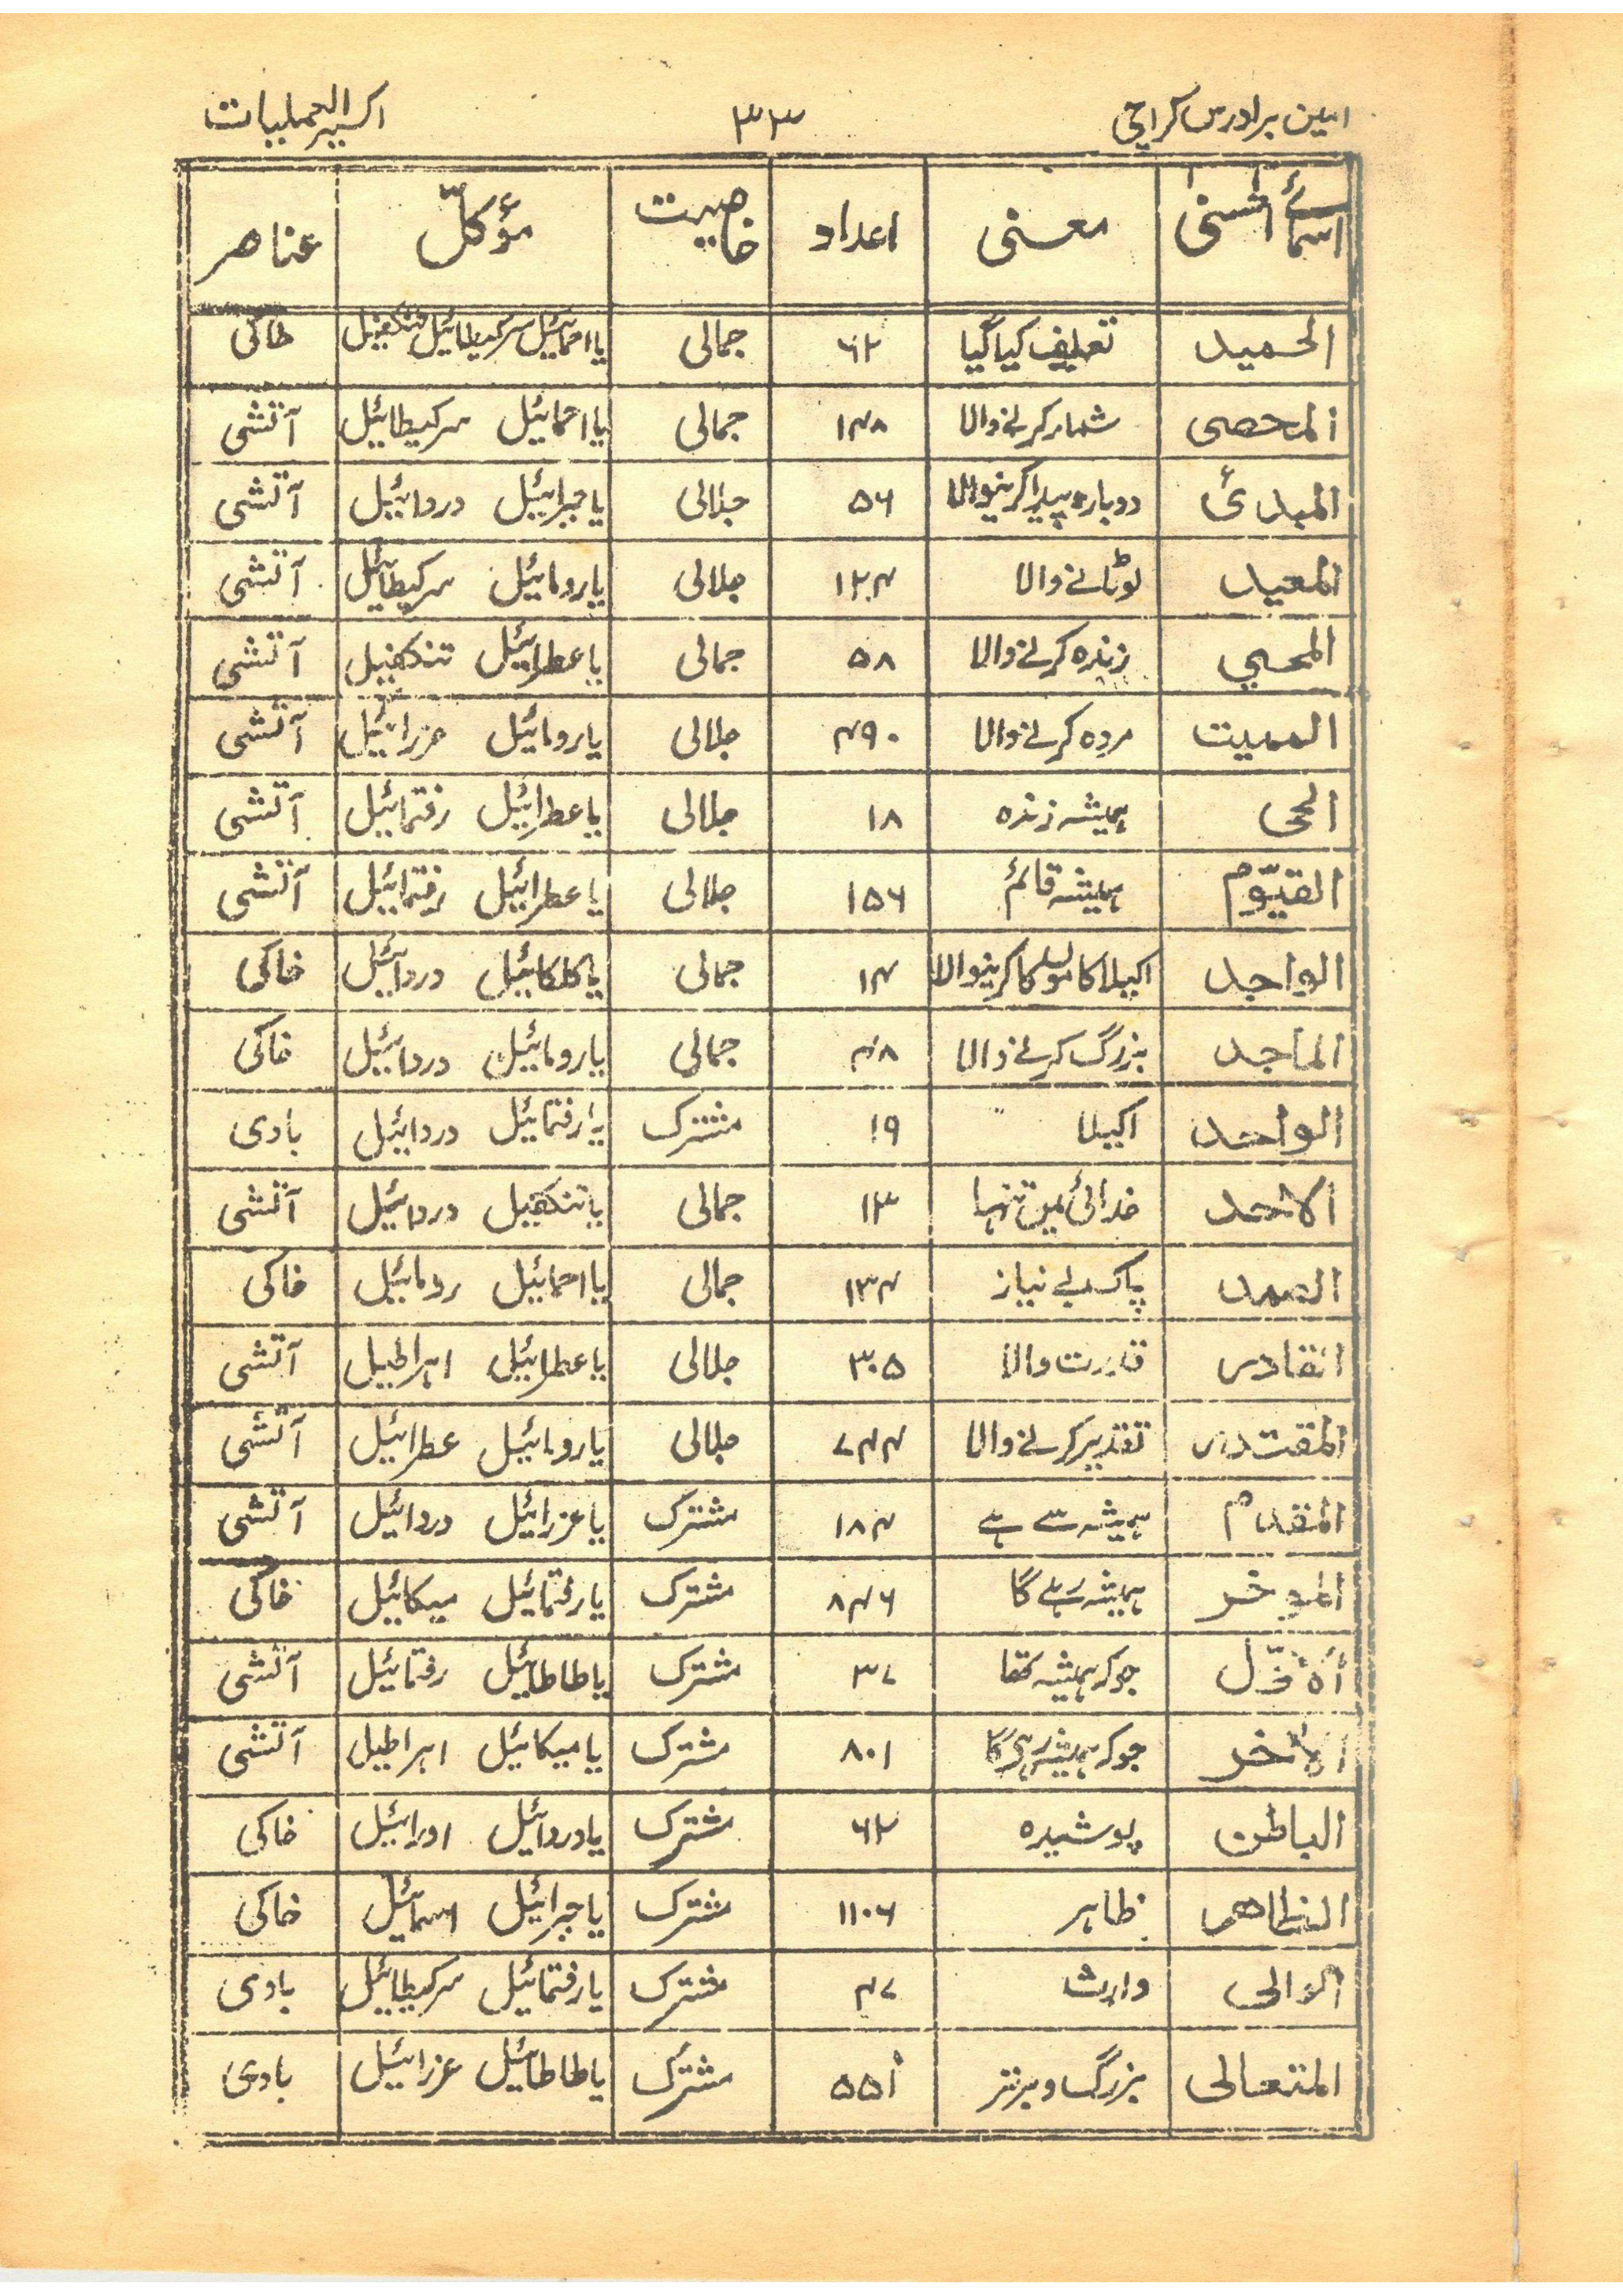 امین برادرس کراچی ۳۳ اکسیر العملیات
اسمائے الحسنیٰ معنی اعداد خاصیت مؤکل عناصر
الحمید تعریف کیا گیا ۶۲ جمالی یا احمائیل سرکیطائیل تنکفیل خاکی
المحصی شمار کرنے والا ۱۴۸ جمالی یا احمائیل سرکیطائیل آتشی
المبدئ دوبارہ پیدا کرنیوالا ۵۶ جلالی یا جبرائیل دردائیل آتشی
المعید لوٹانے والا ۱۲۴ جلالی یا رومائیل سرکیطائیل آتشی
المحیی زندہ کرنے والا ۵۸ جمالی یا عطرائیل تنکفیل آتشی
الممیت مردہ کرنے والا ۴۹۰ جلالی یا رومائیل عزرائیل آتشی
الحی ہمیشہ زندہ ۱۸ جلالی یا عطرائیل رفتمائیل آتشی
القیّوم ہمیشہ قائم ۱۵۶ جلالی یا عطرائیل رفتمائیل آتشی
الواجد اکیلا کا کرنیوالا ۱۴ جمالی یا کلکائیل دردائیل خاکی
الماجد بزرگ کرنے والا ۴۸ جمالی یا رومائیل دردائیل خاکی
الواحد اکیلا ۱۹ مشترک یا رفتمائیل دردائیل بادی
الاحد خدائی میں تنہا ۱۳ جمالی یا تنکفیل دردائیل آتشی
الصمد پاک بے نیاز ۱۳۴ جمالی یا احمائیل رومائیل خاکی
القادر قدرت والا ۳۰۵ جلالی یا عطرائیل اہراطیل آتشی
المقتدر تقدیر کرنے والا ۷۴۴ جلالی یا رومائیل عطرائیل آتشی
المقدم ہمیشہ سے ہے ۱۸۴ مشترک یا عزرائیل دردائیل آتشی
الموخر ہمیشہ رہے گا ۸۴۶ مشترک یا رفتمائیل میکائیل خاکی
الاوّل جو کہ ہمیشہ تھا ۳۷ مشترک یا طاطائیل رفتمائیل آتشی
الآخر جو کہ ہمیشہ رہیگا ۸۰۱ مشترک یا میکائیل اہراطیل آتشی
الباطن پوشیدہ ۶۲ مشترک یا دردائیل اورائیل خاکی
الظاھر ظاہر ۱۱۰۶ مشترک یا جبرائیل اسمائیل خاکی
الوالی وارث ۴۷ مشترک یا رفتمائیل سرکیطائیل بادی
المتعالی بزرگ و برتر ۵۵۱ مشترک یا طاطائیل عزرائیل بادی